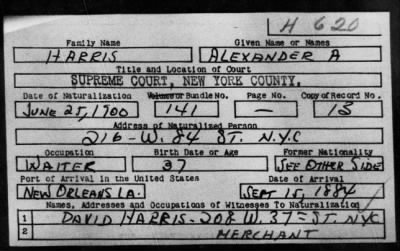 H 620
Family Name Given Name or Names
HARRIS ALEXANDER A
Title and Location of Court
SUPREME COURT, NEW YORK COUNTY.
Date of Naturalization Volume or Bundle No. Page No. Copy of Record No.
JUNE 25, 1900 141 — 13
Address of Naturalized Person
216 - W. 84 ST. N.Y.C
Occupation Birth Date or Age Former Nationality
WAITER 37 SEE OTHER SIDE
Port of Arrival in the United States Date of Arrival
NEW ORLEANS LA. SEPT 15, 1884
Names, Addresses and Occupations of Witnesses To Naturalization
1 DAVID HARRIS - 208 W. 37 = ST. NYC
2 MERCHANT